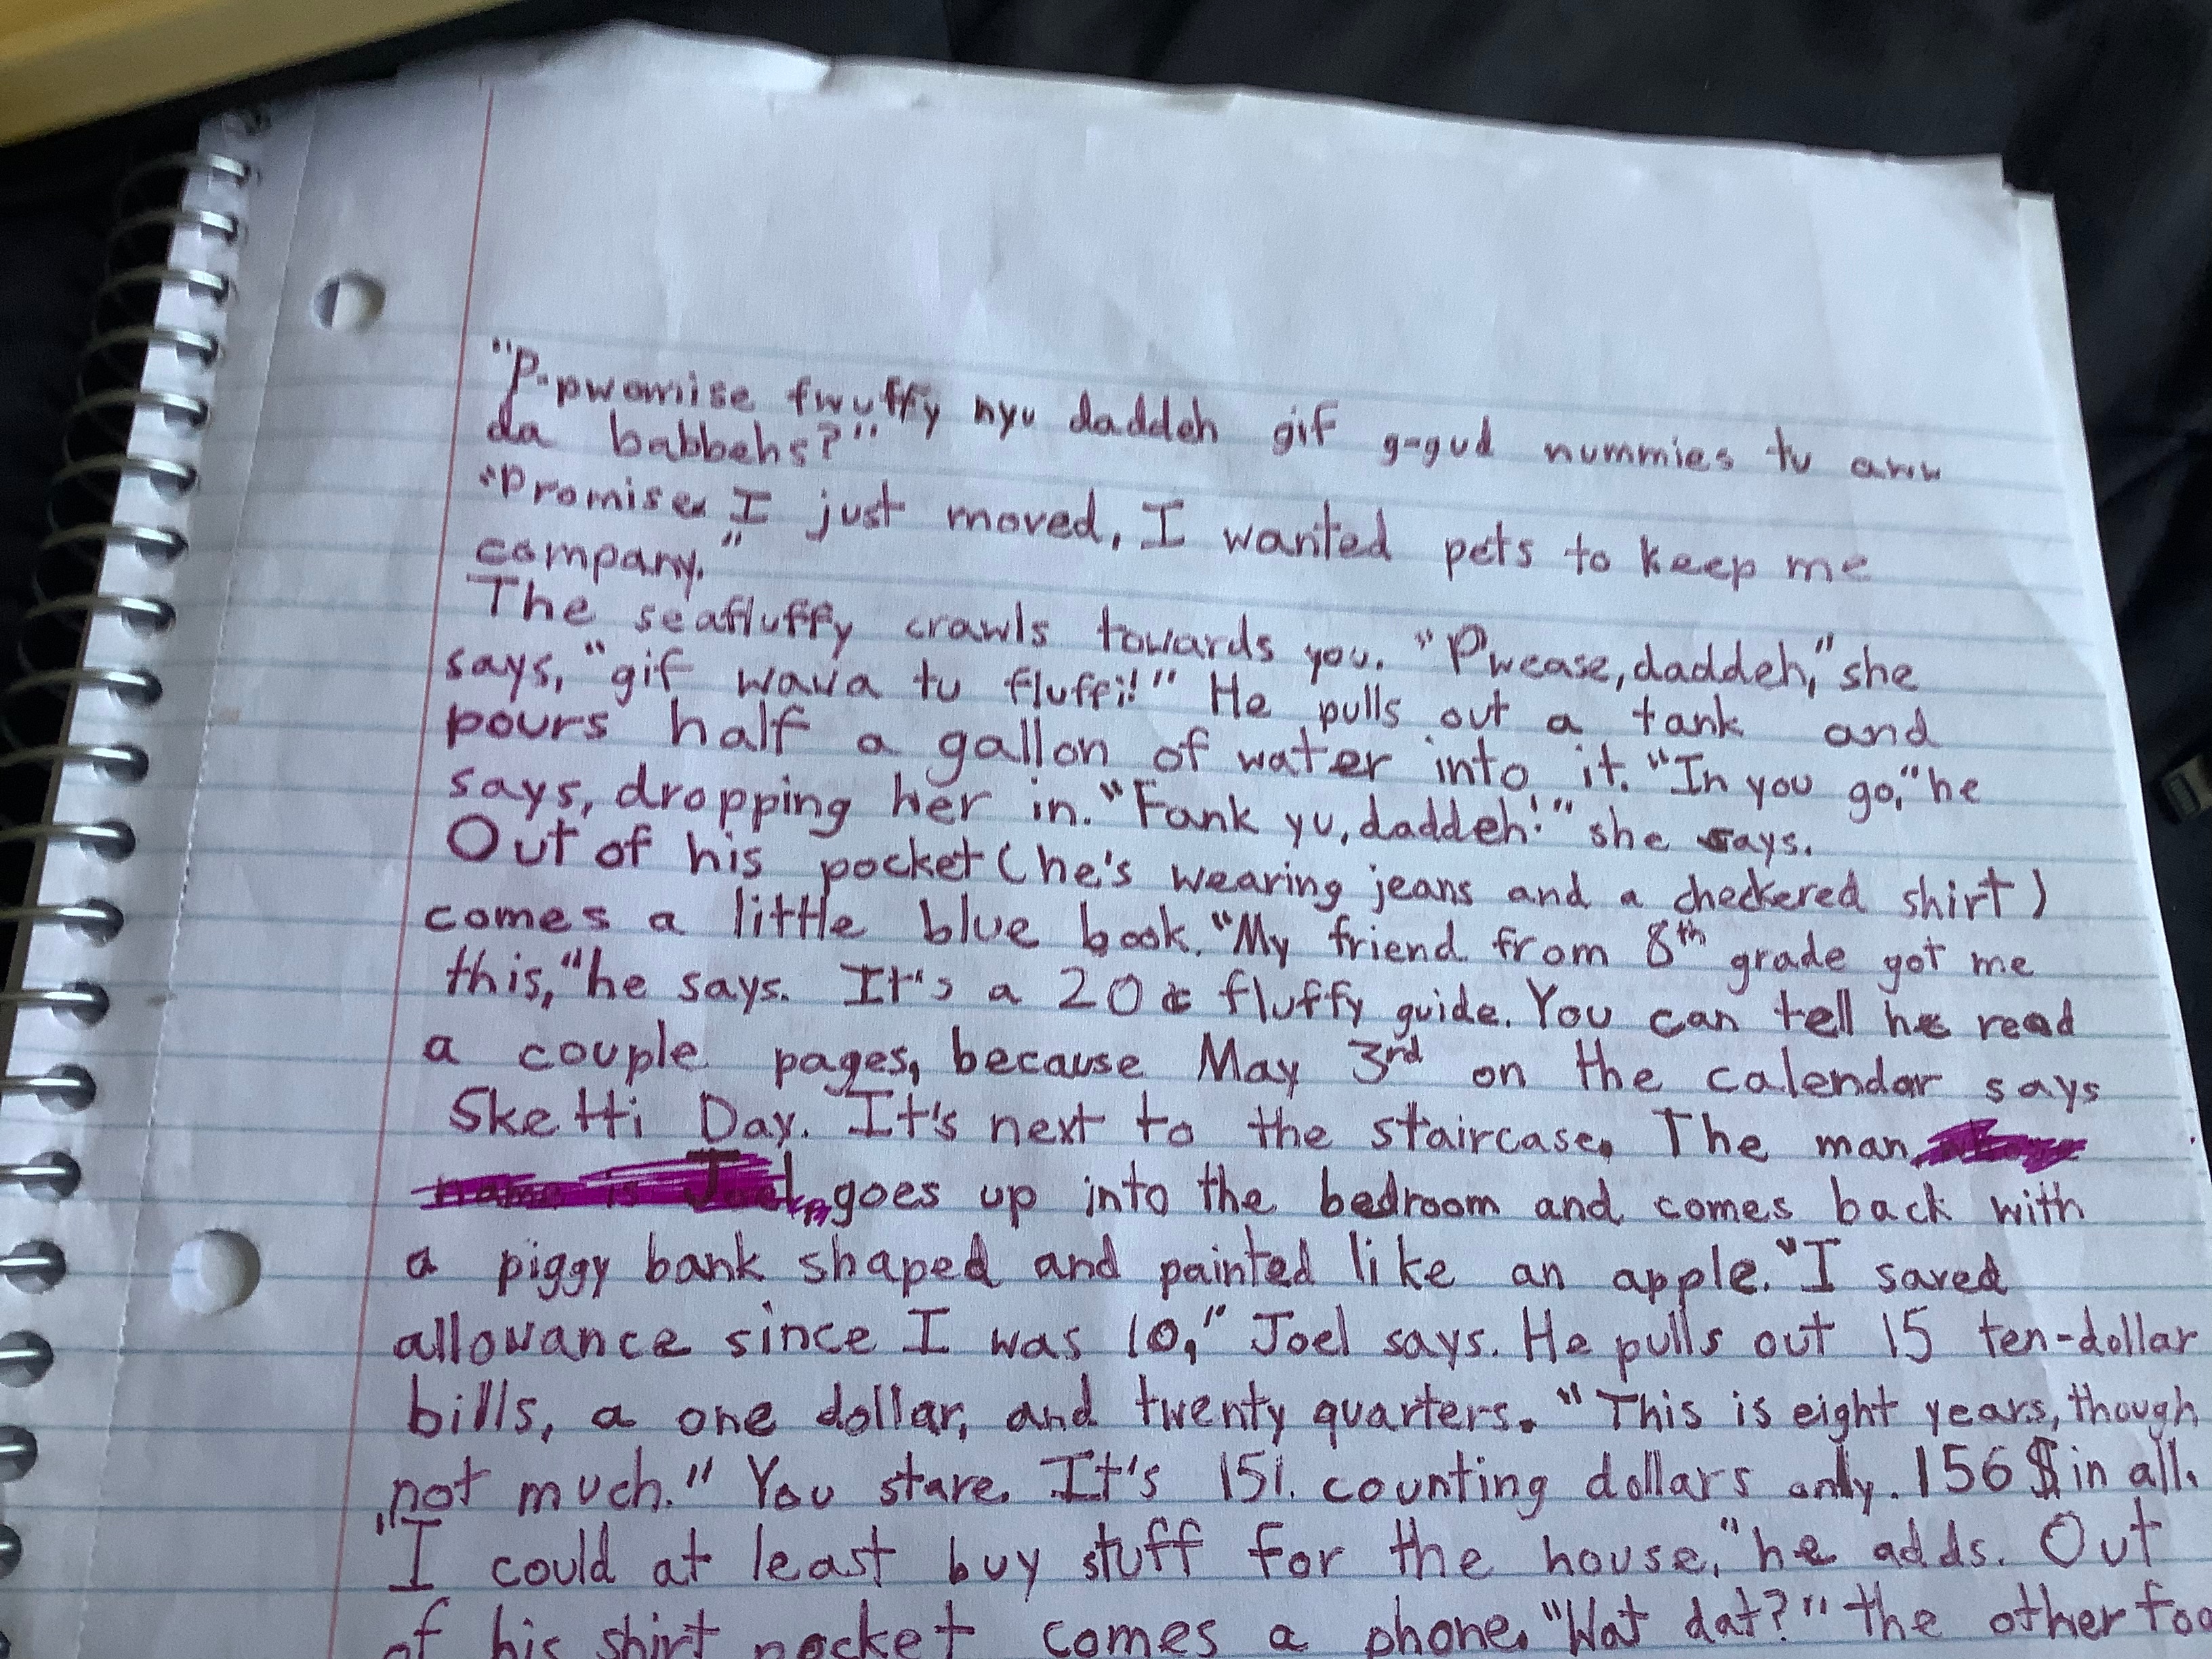 "P-pwomise fwuffy nyu daddeh gif g-gud nummies tu aww
da babbehs?"
"Promise. I just moved, I wanted pets to keep me
company."
The seafluffy crawls towards you. "Pwease, daddeh," she
says, "gif wawa tu fluffi!" He pulls out a tank and
pours half a gallon of water into it. "In you go," he
says, dropping her in. "Fank yu, daddeh!" she says.
Out of his pocket (he's wearing jeans and a checkered shirt)
comes a little blue book. "My friend from 8th grade got me
this," he says. It's a 20¢ fluffy guide. You can tell he read
a couple pages, because May 3rd on the calendar says
Sketti Day. It's next to the staircase. The man
name is Joel, goes up into the bedroom and comes back with
a piggy bank shaped and painted like an apple. "I saved
allowance since I was 10," Joel says. He pulls out 15 ten-dollar
bills, a one dollar, and twenty quarters. "This is eight years, though
not much." You stare. It's 151. counting dollars only. 156$ in all.
"I could at least buy stuff for the house," he adds. Out
of his shirt pocket comes a phone. "Wat dat?" the other